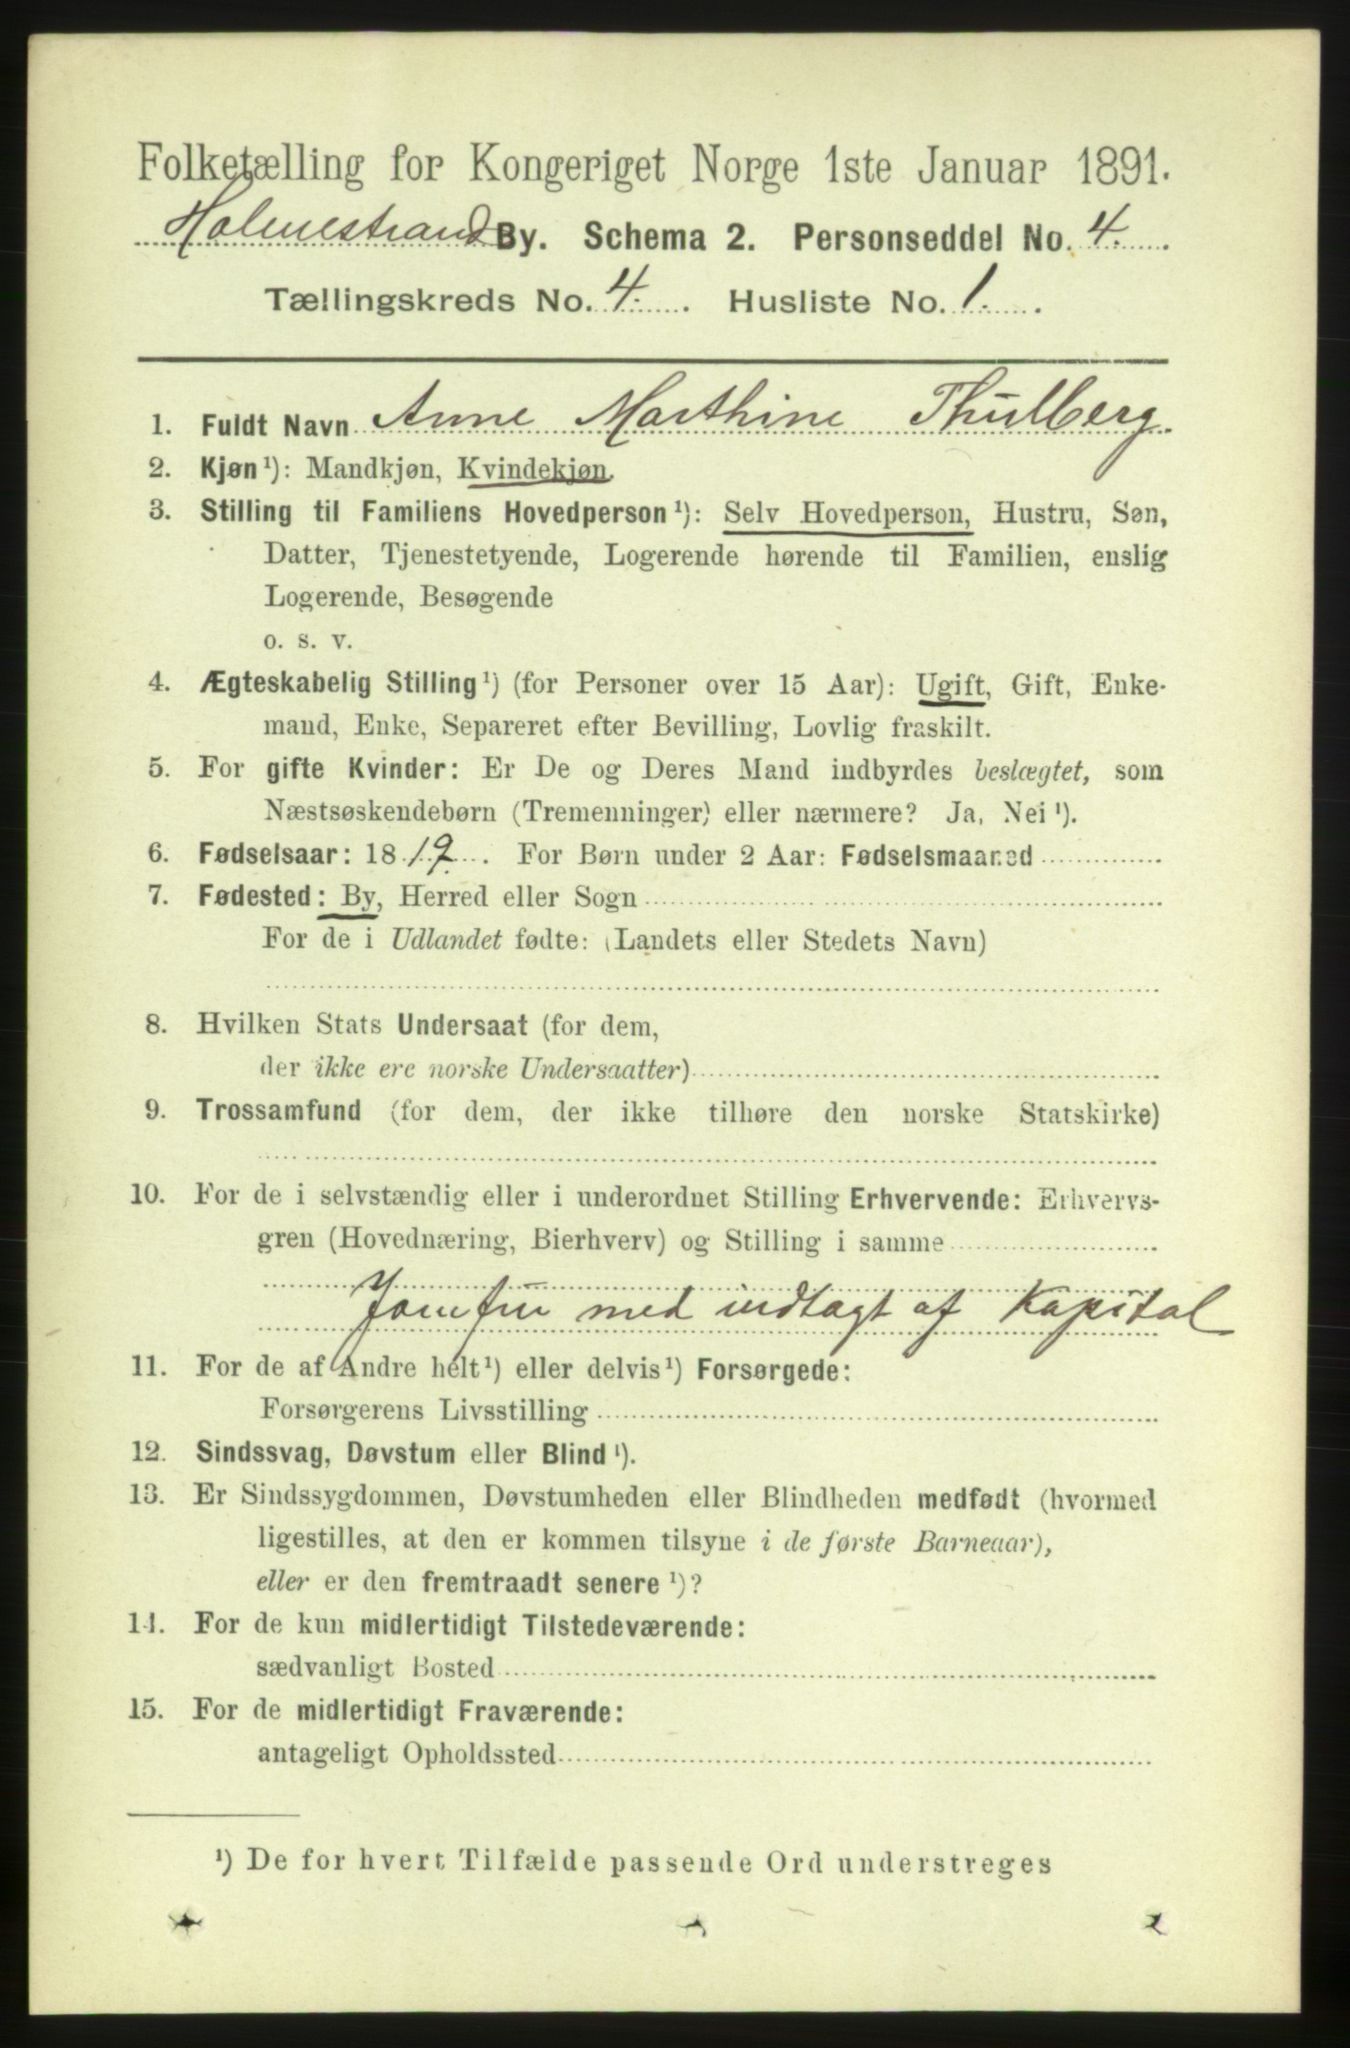 Folketælling for Kongeriget Norge 1ste Januar 1891.
Holmestrand By. Schema 2. Personseddel No. 4.
Tællingskreds No. 4. Husliste No. 1.
1. Fuldt Navn Anne Marthine Thulberg
2. Kjøn¹): Mandkjøn, Kvindekjøn.
3. Stilling til Familiens Hovedperson¹): Selv Hovedperson, Hustru, Søn,
Datter, Tjenestetyende, Logerende hørende til Familien, enslig
Logerende, Besøgende
o. s. v.
4. Ægteskabelig Stilling¹) (for Personer over 15 Aar): Ugift, Gift, Enke-
mand, Enke, Separeret efter Bevilling, Lovlig fraskilt.
5. For gifte Kvinder: Er De og Deres Mand indbyrdes beslægtet, som
Næstsøskendebørn (Tremenninger) eller nærmere? Ja, Nei¹).
6. Fødselsaar: 1819. For Børn under 2 Aar: Fødselsmaaned
7. Fødested: By, Herred eller Sogn
For de i Udlandet fødte: (Landets eller Stedets Navn)
8. Hvilken Stats Undersaat (for dem,
der ikke ere norske Undersaatter)
9. Trossamfund (for dem, der ikke tilhøre den norske Statskirke)
10. For de i selvstændig eller i underordnet Stilling Erhvervende: Erhvervs-
gren (Hovednæring, Bierhverv) og Stilling i samme
Jomfru med indtagt af Kapital
11. For de af Andre helt¹) eller delvis¹) Forsørgede:
Forsørgerens Livsstilling
12. Sindssvag, Døvstum eller Blind¹).
13. Er Sindssygdommen, Døvstumheden eller Blindheden medfødt (hvormed
ligestilles, at den er kommen tilsyne i de første Barneaar),
eller er den fremtraadt senere¹)?
14. For de kun midlertidigt Tilstedeværende:
sædvanligt Bosted
15. For de midlertidigt Fraværende:
antageligt Opholdssted
¹) De for hvert Tilfælde passende Ord understreges